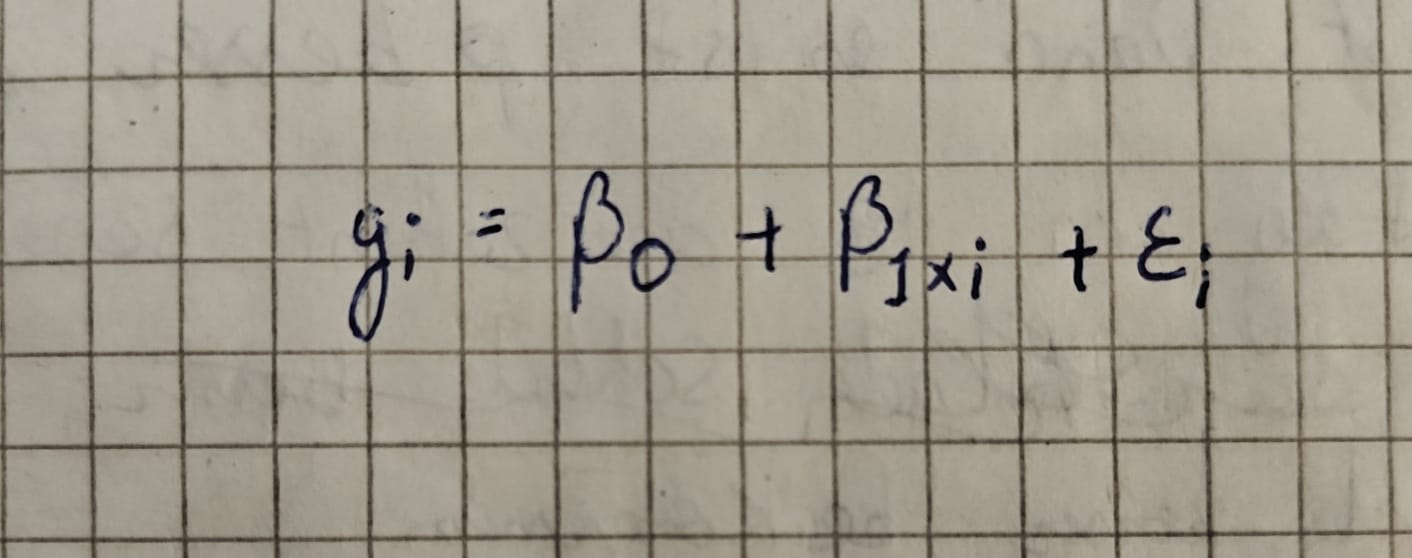 yᵢ = β₀ + β₁ₓᵢ + εᵢ